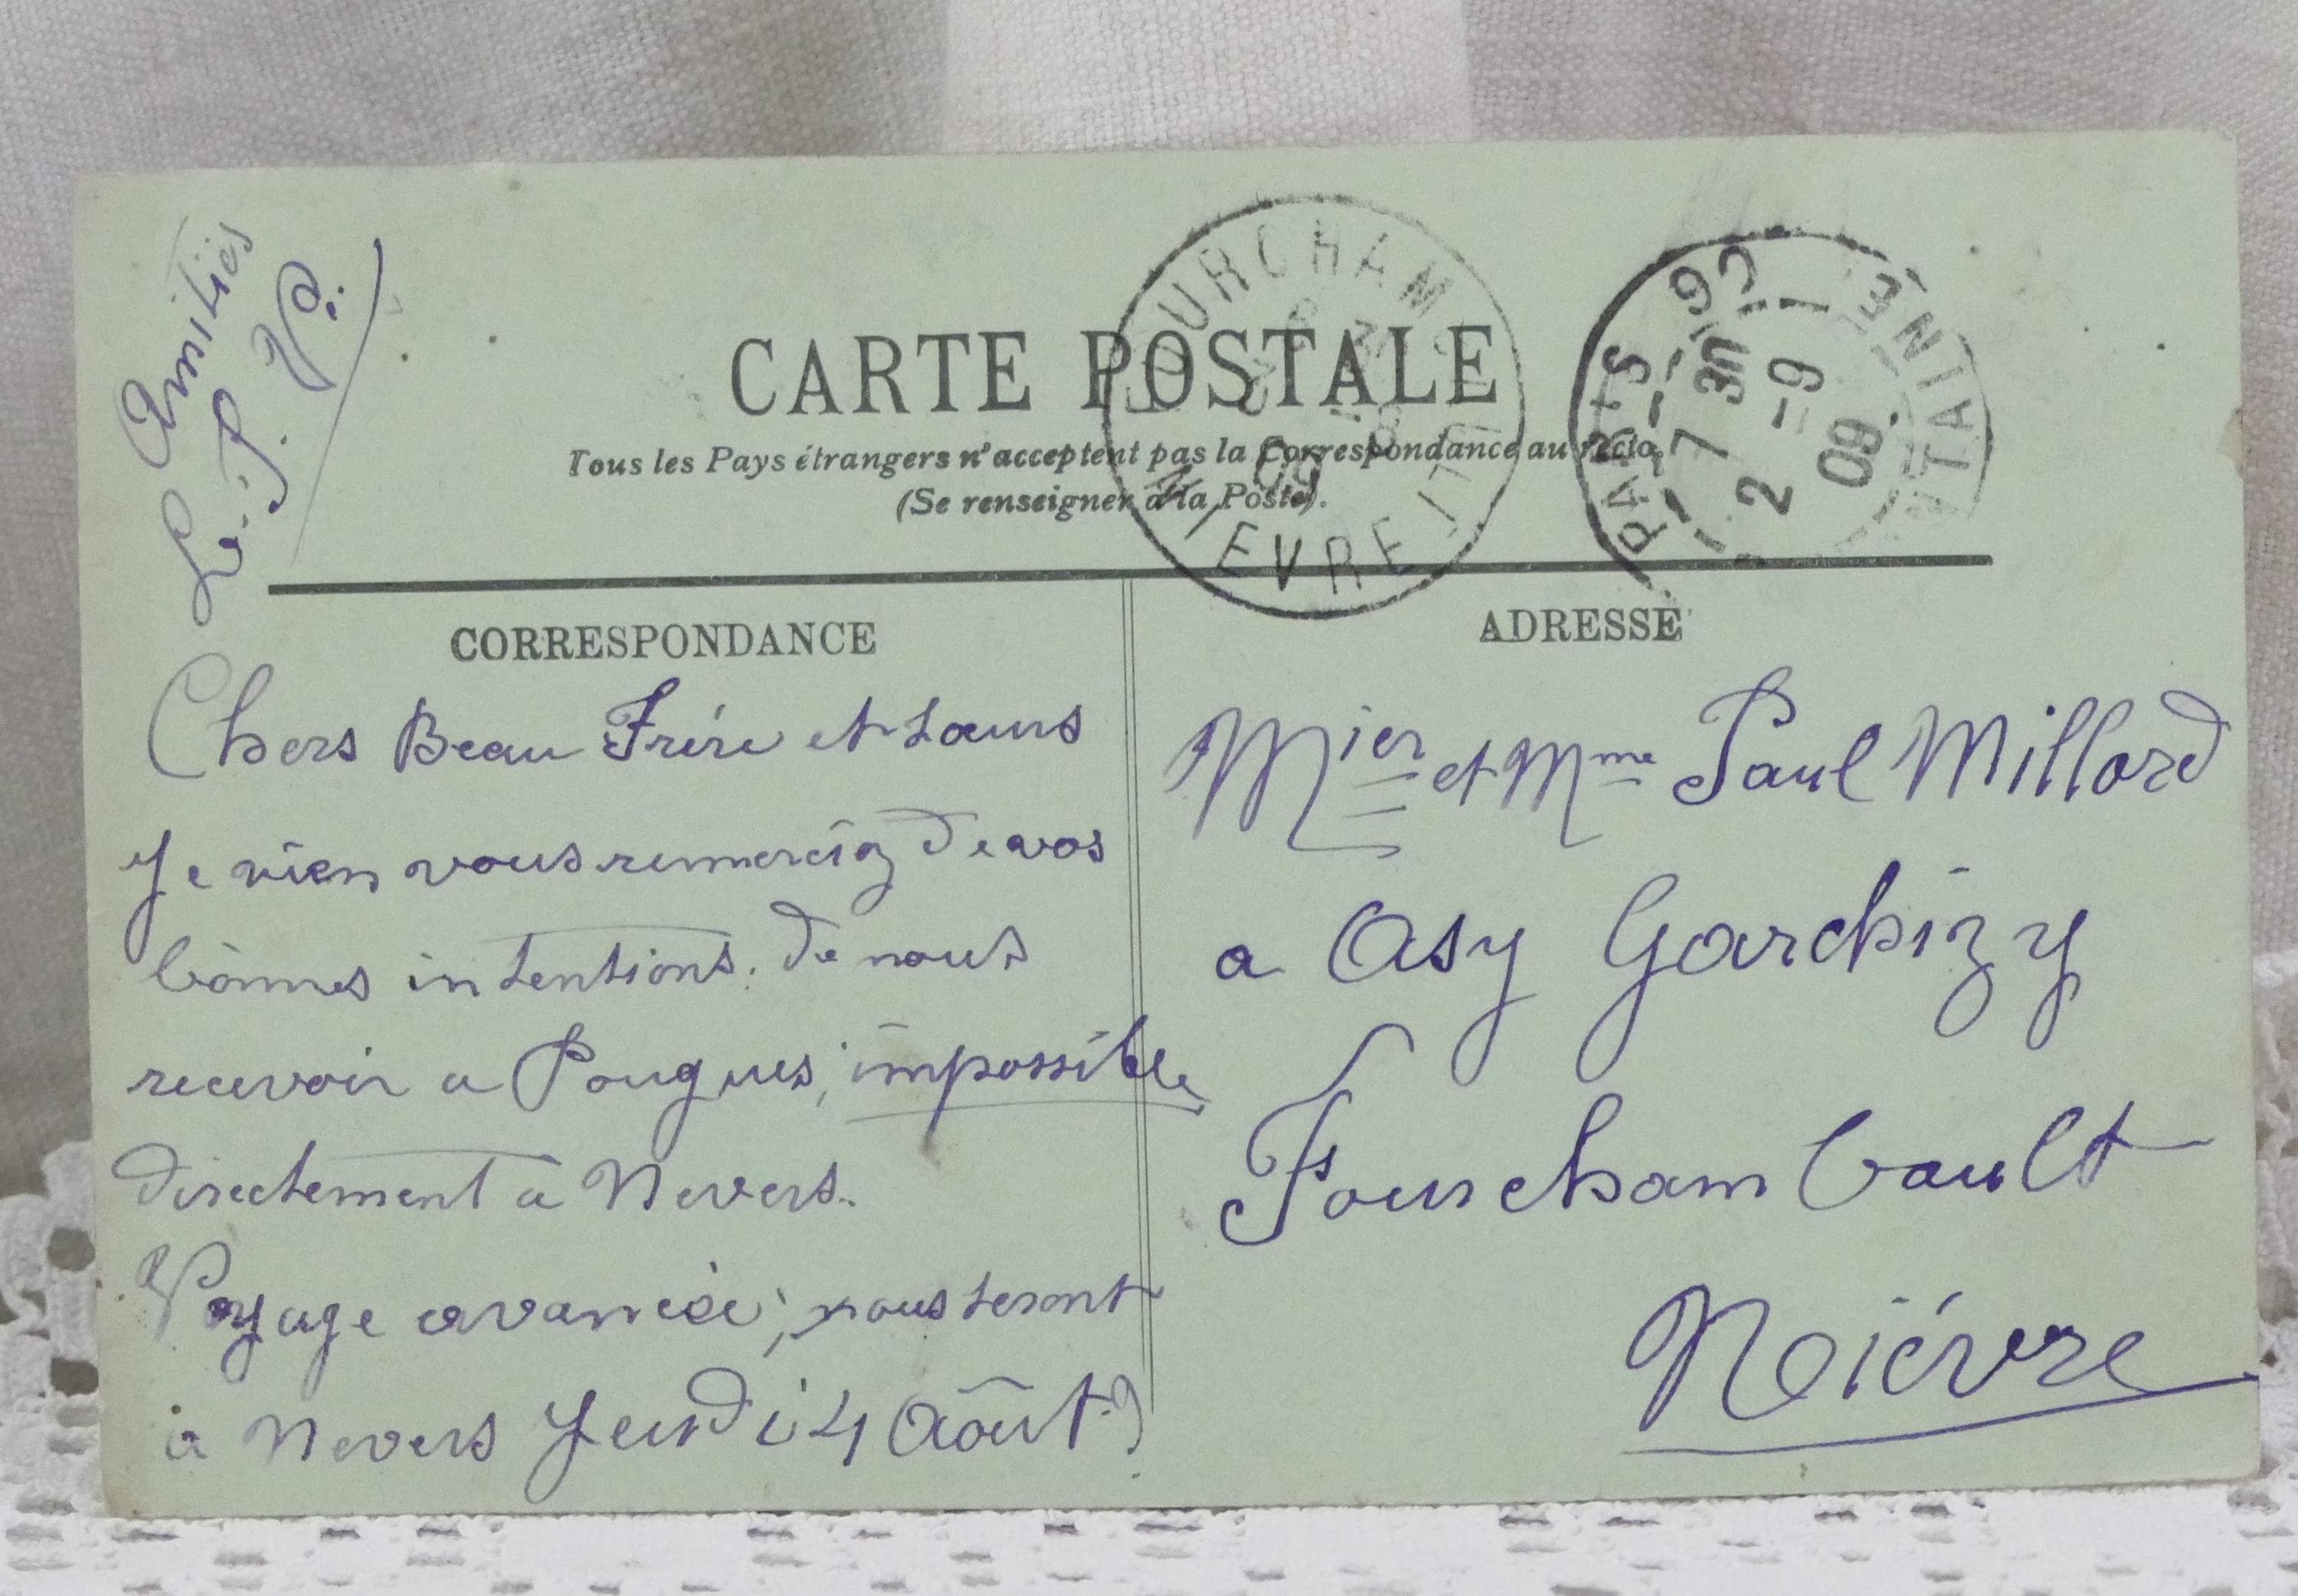 Amitiés
L. P. V.
CARTE POSTALE
Tous les Pays étrangers n'acceptent pas la Correspondance au recto
(Se renseigner à la Poste).
FOURCHAM
NIEVRE
PARIS
7 30
2 - 9
09
CORRESPONDANCE
Chers Beau Frére et sœurs
Je vien vous remerciez de vos
bonnes intentions. de nous
recevoir a Pougues, impossible
directement a Nevers.
Voyage avancée, nous seront
a Nevers Jeudi 4 Août ?
ADRESSE
Mier et Mme Paul Millard
a Asy Garchizy
Fourchambault
Niévre